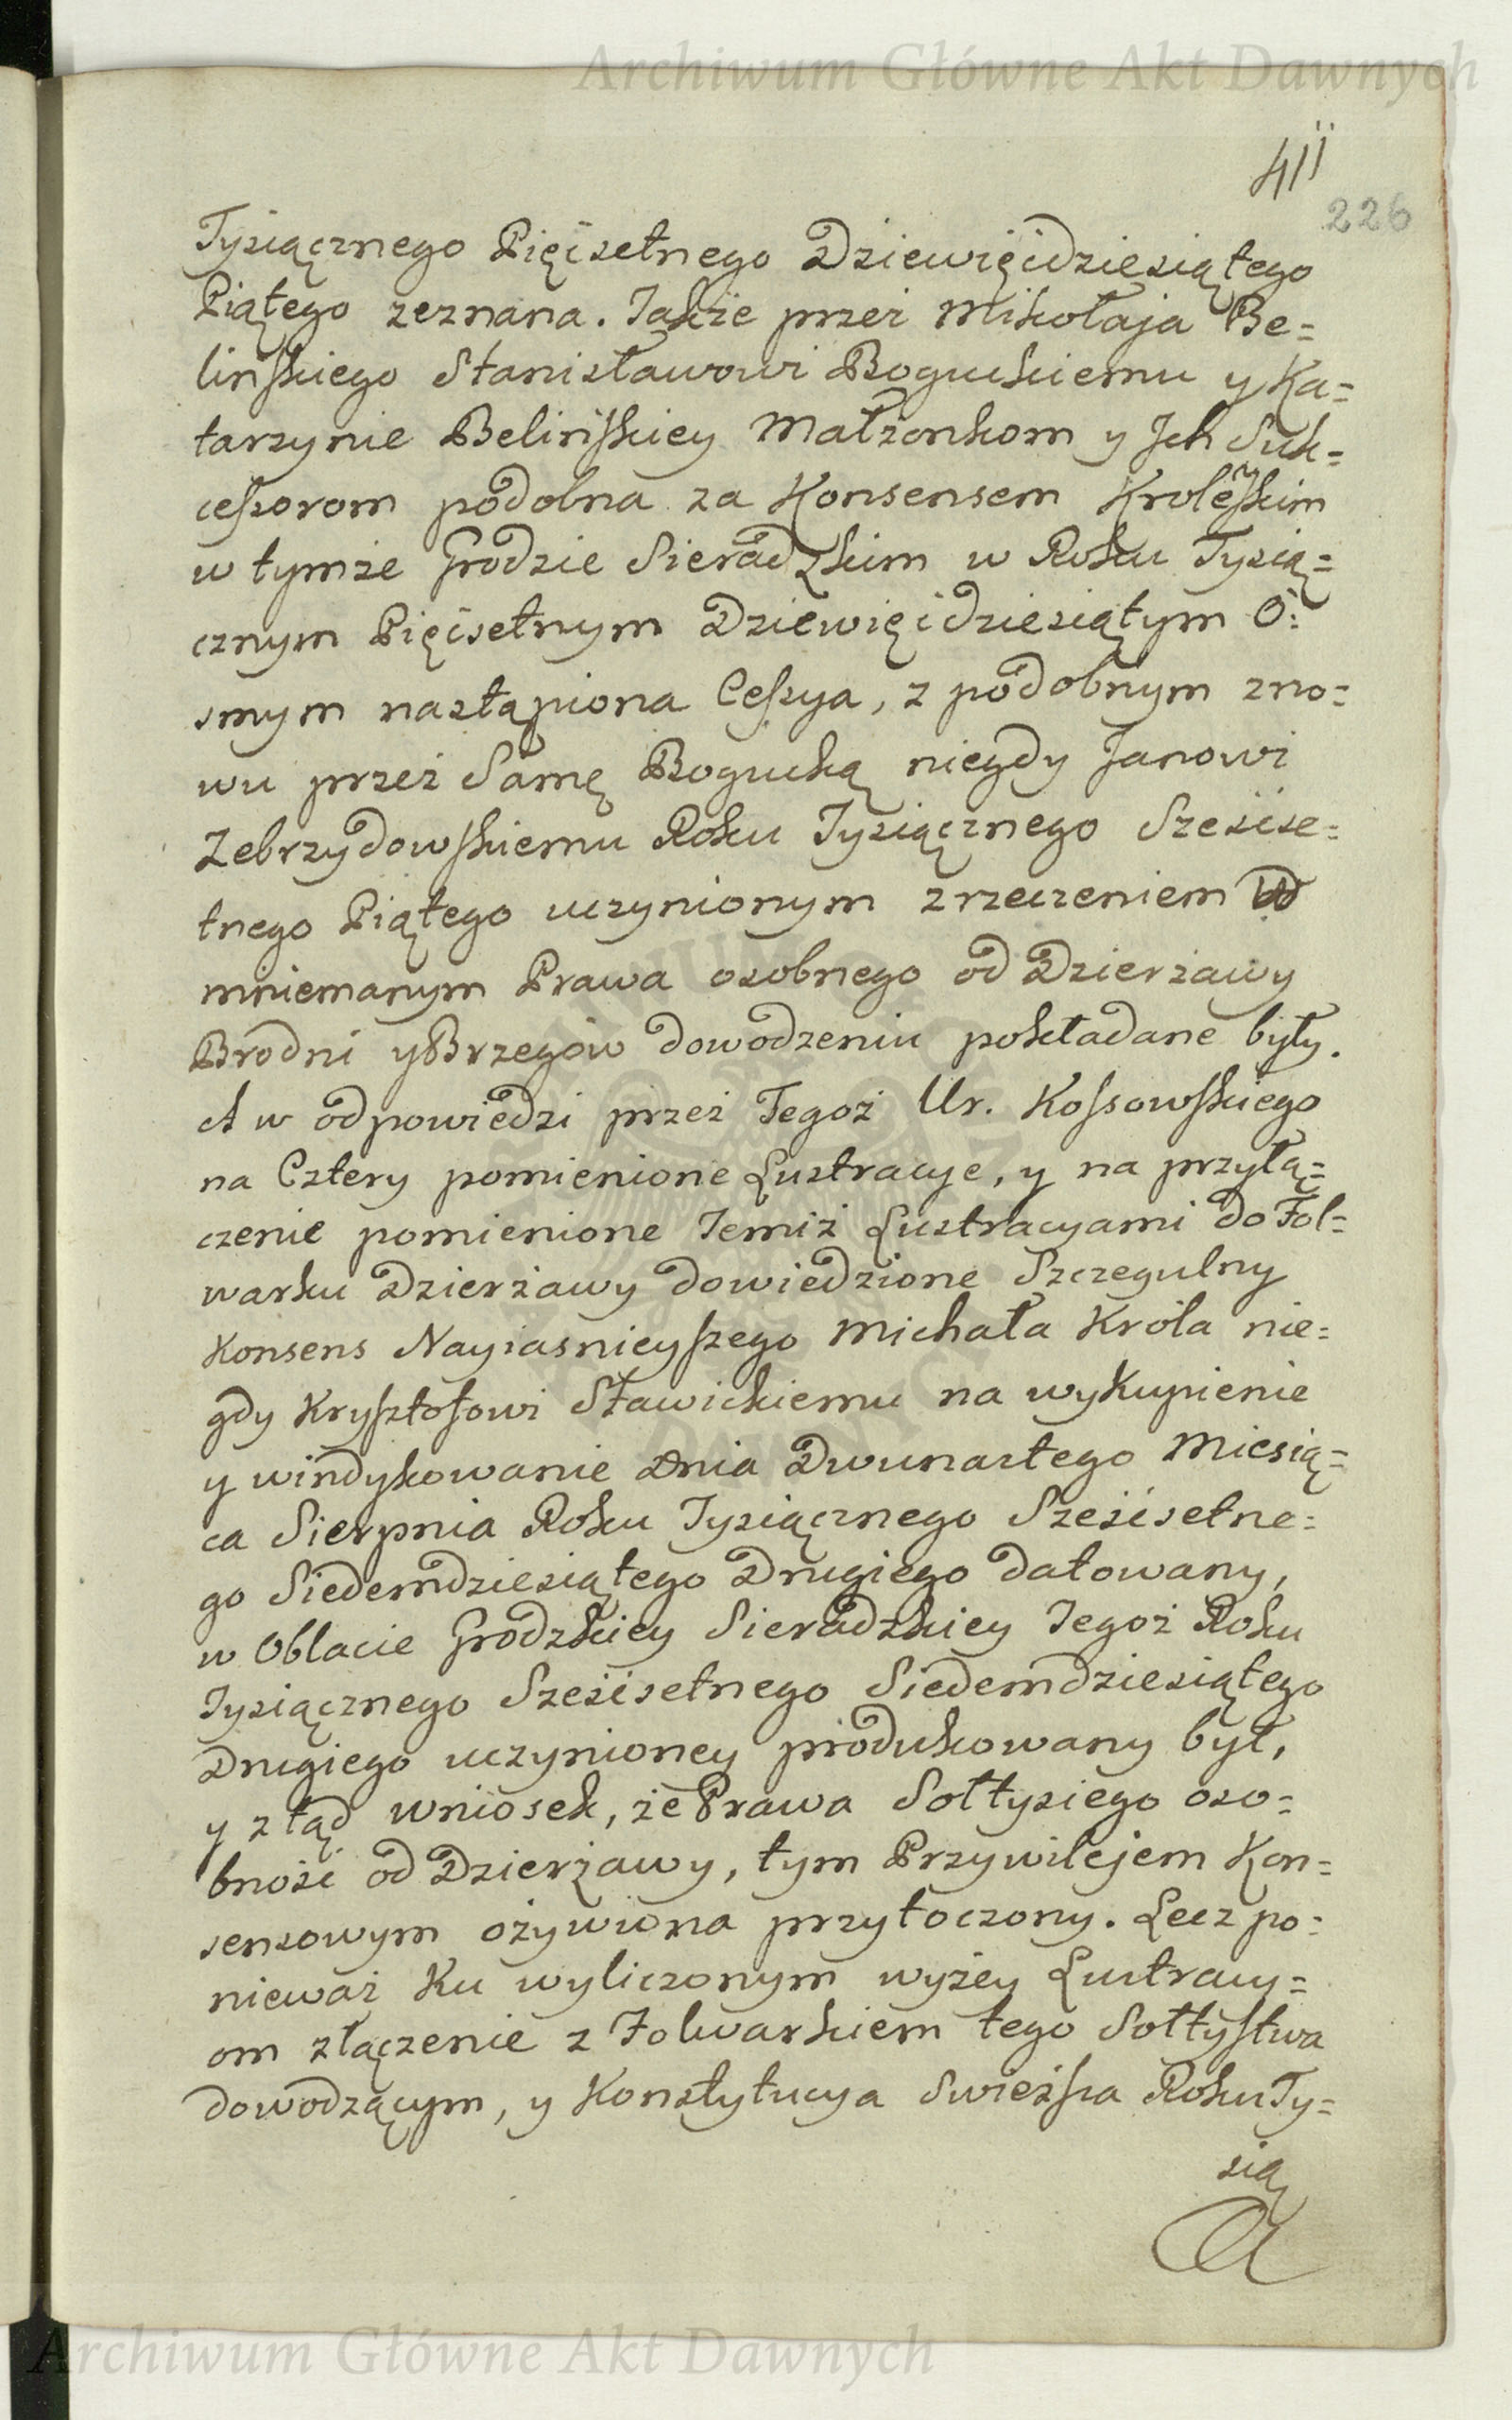 Archiwum Główne Akt Dawnych
411
226
Tysiącznego Pięćsetnego Dziewięćdziesiątego
Piątego zeznana. Także przez Mikołaja Be=
linskiego Stanisławowi Boguckiemu y Ka=
tarzynie Belińskiey Małżonkom y Jch Suk=
cessorom podobna za Konsensem Krolewskim
w tymże Grodzie Sieradzkim w Roku Tysią=
cznym Pięćsetnym Dziewięćdziesiątym O=
smym nastąpiona Cessya, z podobnym zno=
wu przez Samę Bogucką niegdy Janowi
Zebrzydowskiemu Roku Tysiącznego Sześcse=
tnego Piątego uczynionym zrzeczeniem w
mniemanym Prawa osobnego od Dzierżawy
Brodni y Brzegów dowodzeniu pokładane były.
A w odpowiedzi przez Tegoż Ur. Kossowskiego
na Cztery pomienione Lustracye, y na przyłą=
czenie pomienione Temiż Lustracyami do Fol=
warku Dzierżawy dowiedzione Szczegulny
Konsens Nayiasnieyszego Michała Króla nie=
gdy Krysztofowi Sławickiemu na wykupienie
y windykowanie Dnia Dwunastego Miesią=
ca Sierpnia Roku Tysiącznego Sześćsetne=
go Siedemdziesiątego Drugiego datowany,
w Oblacie Grodzkiey Sieradzkiey Tegoż Roku
Tysiącznego Sześćsetnego Siedemdziesiątego
Drugiego uczynioney produkowany był,
y ztąd wniosek, że Prawa Sołtysiego oso=
bność od Dzierżawy, tym Przywilejem Kon=
sensowym ożywiona przytoczony. Lecz po=
nieważ Ku wyliczonym wyżey Lustracy=
om złączenie z Folwarkiem tego Sołtystwa
dowodzącym, y Konstytucya Swieższa Roku Ty=
sią
Archiwum Główne Akt Dawnych